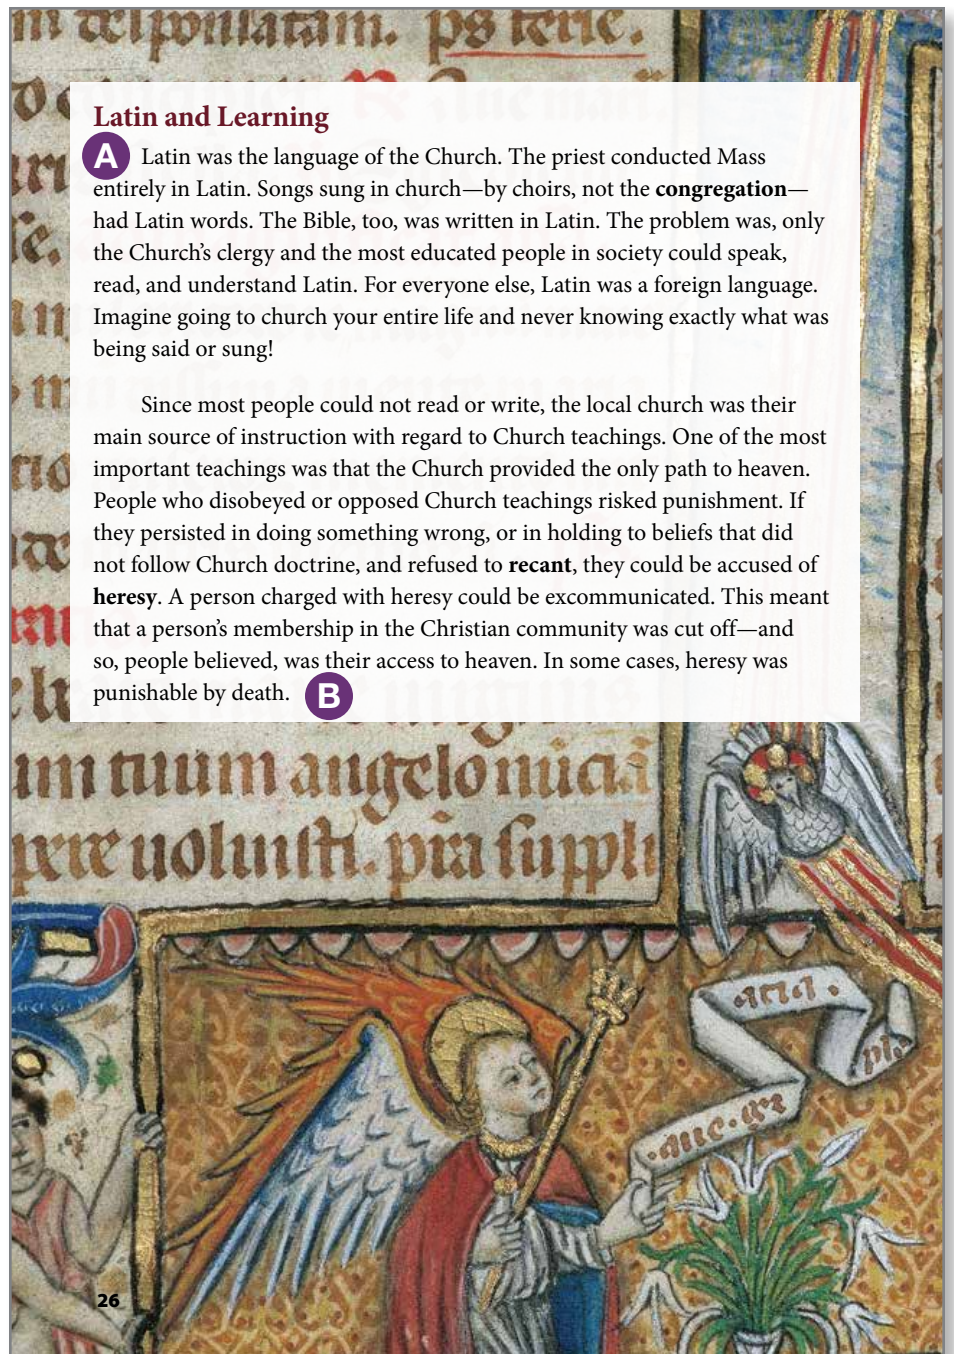 ps terie.
Latin and Learning
A Latin was the language of the Church. The priest conducted Mass
entirely in Latin. Songs sung in church—by choirs, not the congregation—
had Latin words. The Bible, too, was written in Latin. The problem was, only
the Church’s clergy and the most educated people in society could speak,
read, and understand Latin. For everyone else, Latin was a foreign language.
Imagine going to church your entire life and never knowing exactly what was
being said or sung!
Since most people could not read or write, the local church was their
main source of instruction with regard to Church teachings. One of the most
important teachings was that the Church provided the only path to heaven.
People who disobeyed or opposed Church teachings risked punishment. If
they persisted in doing something wrong, or in holding to beliefs that did
not follow Church doctrine, and refused to recant, they could be accused of
heresy. A person charged with heresy could be excommunicated. This meant
that a person’s membership in the Christian community was cut off—and
so, people believed, was their access to heaven. In some cases, heresy was
punishable by death. B
um tuum angelo
uoluisti. suppli
26